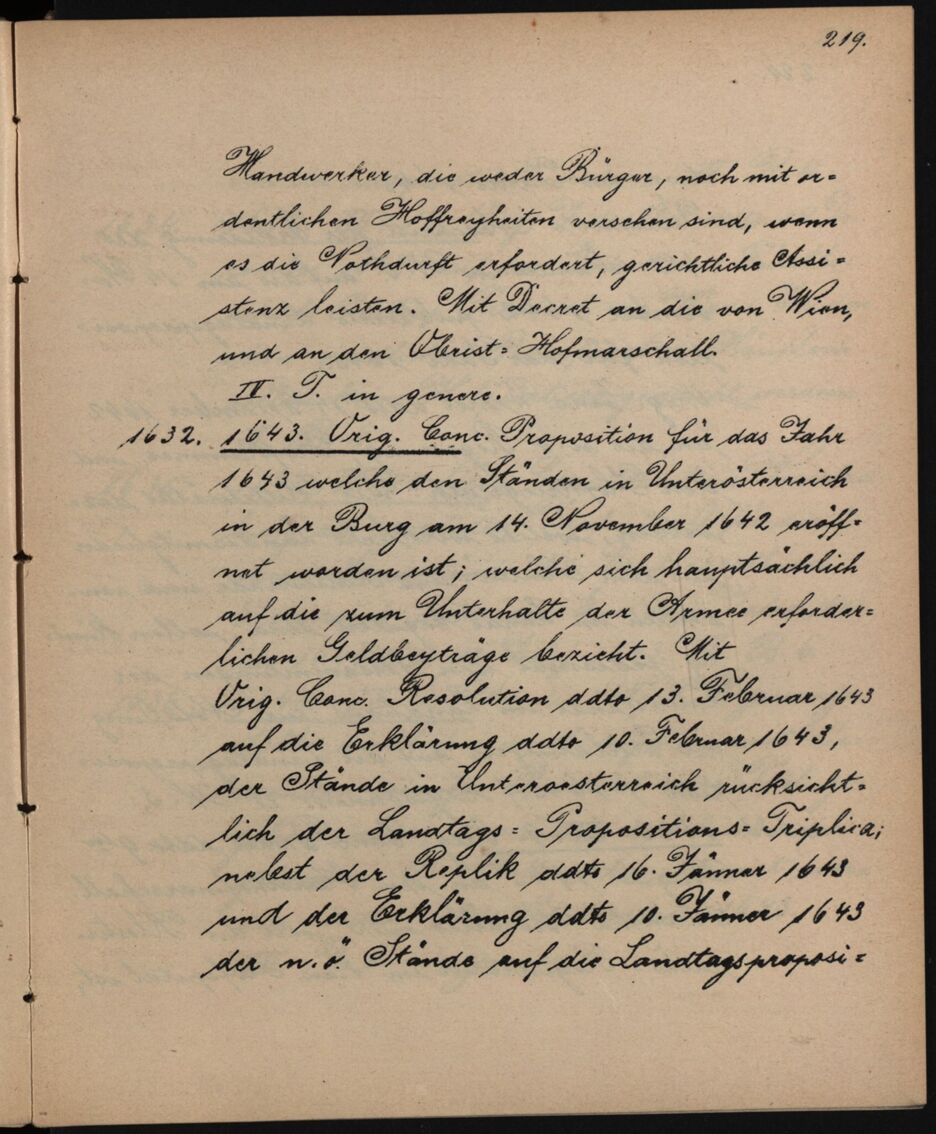 219.
Handwerker, die weder Bürger, noch mit or=
dentlichen Hoffreyheiten versehen sind, wenn
es die Nothdurft erfordert, gerichtliche Assi=
stenz leisten. Mit Decret an die von Wien,
und an den Obrist= Hofmarschall.
IV. T. in genere.
1632. 1643. Orig. Conc. Proposition für das Jahr
1643 welche den Ständen in Unterösterreich
in der Burg am 14. November 1642 eröff=
net worden ist; welche sich hauptsächlich
auf die zum Unterhalte der Armee erforder=
lichen Geldbeyträge bezieht. Mit
Orig. Conc. Resolution ddto 13. Februar 1643
auf die Erklärung ddto 10. Februar 1643,
der Stände in Unteroesterreich rücksicht=
lich der Landtags= Propositions= Triplica;
nebst der Replik ddto 16. Jänner 1643
und der Erklärung ddto 10. Jänner 1643
der n.ö. Stände auf die Landtagsproposi=